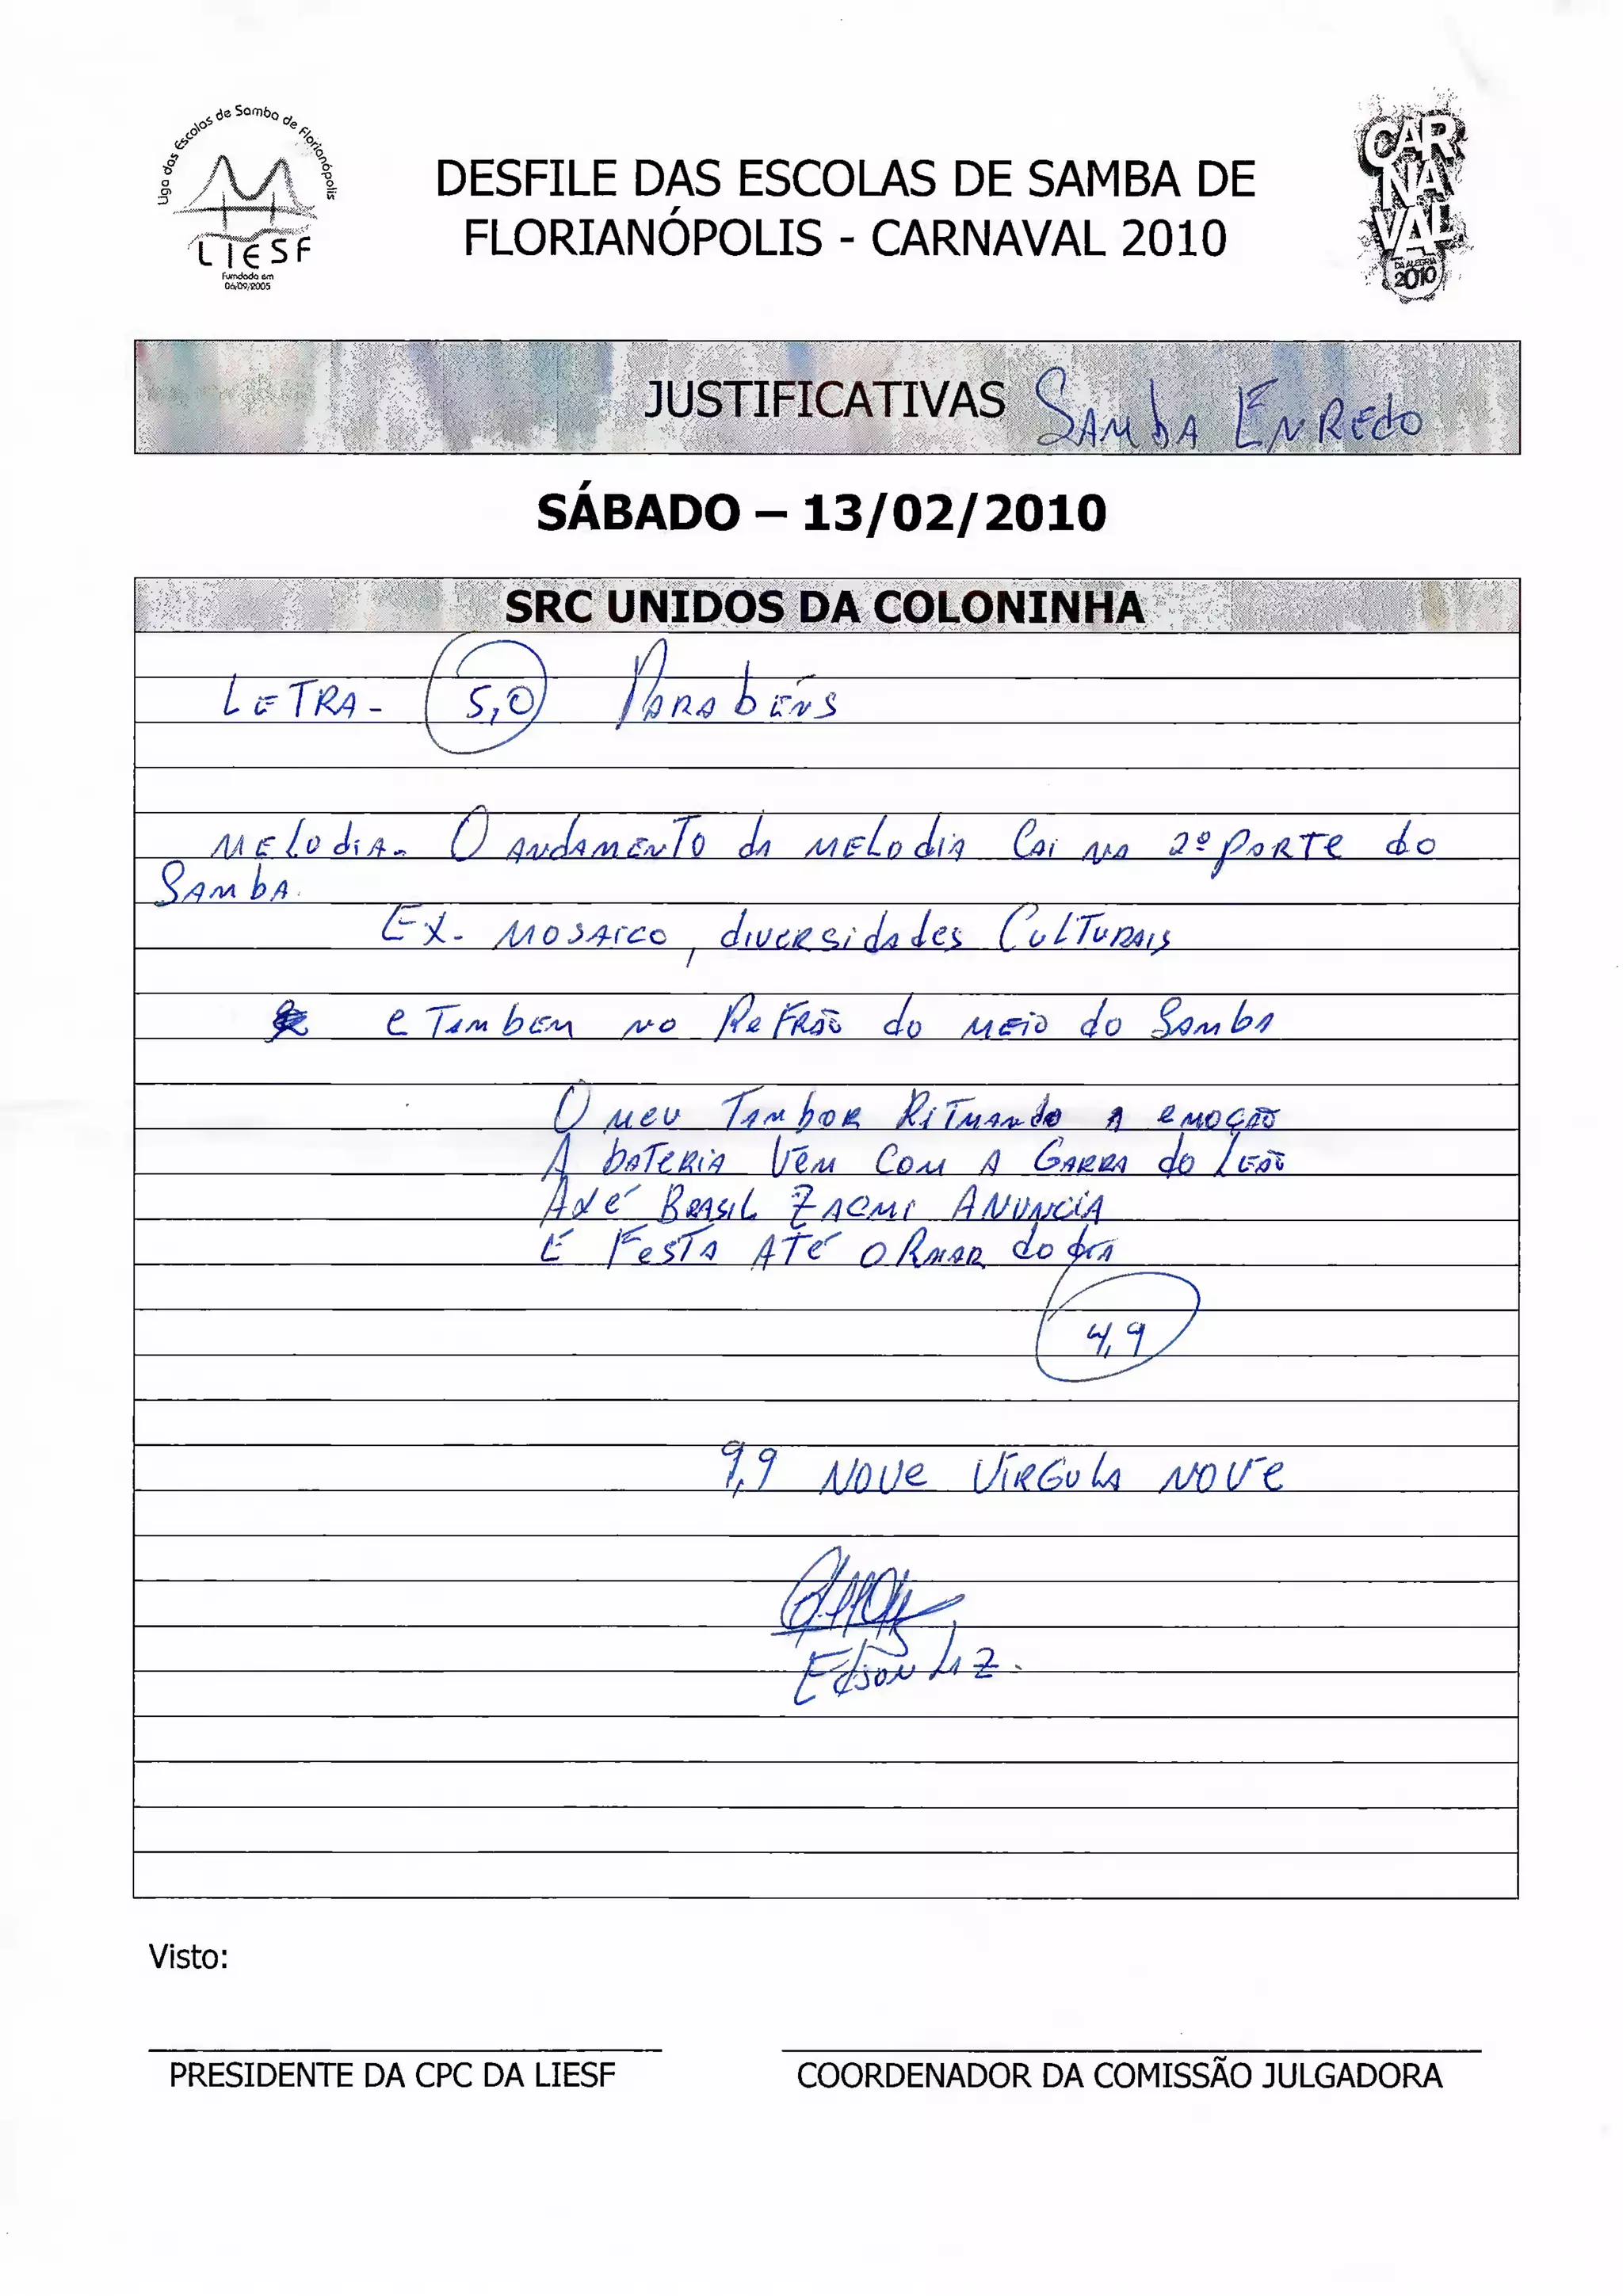 Liga das Escolas de Samba de Florianópolis
LIESF
Fundada em
06/09/2005
DESFILE DAS ESCOLAS DE SAMBA DE
FLORIANÓPOLIS - CARNAVAL 2010
CAR
NA
VAL
DA ALEGRIA
2010
JUSTIFICATIVAS SAMbA ENREdo
SÁBADO – 13/02/2010
SRC UNIDOS DA COLONINHA
LETRA - 5,0 PARAbÉNS
MELodiA - O ANdAMENTO dA MELodiA CAi NA 2º PARTE do
SAMbA.
EX - MOSAICO, diVERSidAdes CULTURAIS
e TAMbEM NO ReFRÃO do MEIO do SAMbA
O MeU TAMbOR RiTMANdo A eMOÇÃO
A bATeRiA VEM COM A GARRA do LEÃO
BRASIL ANUNCIA
É FeSTA ATÉ O do diA
4,9
9,9 NOVe VÍRGULA NOVe
EdSON
Visto:
PRESIDENTE DA CPC DA LIESF
COORDENADOR DA COMISSÃO JULGADORA